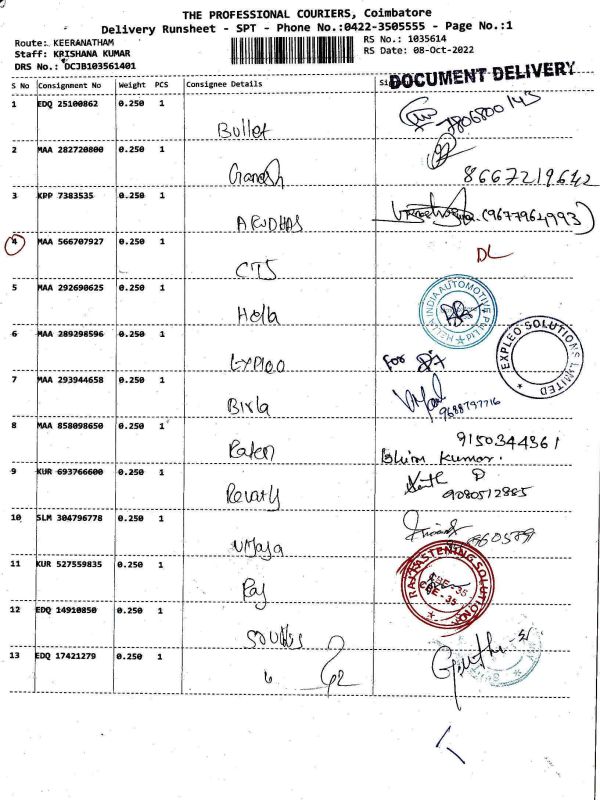 THE PROFESSIONAL COURIERS, Coimbatore
Delivery Runsheet - SPT - Phone No.:0422-3505555 - Page No.:1
Route: KEERANATHAM
RS No.: 1035614
Staff: KRISHANA KUMAR
RS Date: 08-Oct-2022
DRS No.: DCJB103561401
DOCUMENT DELIVERY
S No Consignment No Weight PCS Consignee Details
1 EDQ 25100862 0.250 1
Bullet 7806800143
2 MAA 282720800 0.250 1
Ganesh 8667219642
3 KPP 7383535 0.250 1
ARUDHAS (9677964993)
4 MAA 566707927 0.250 1
CTS DL
5 MAA 292690625 0.250 1
Hella
HELLA INDIA AUTOMOTIVE PVT LTD
6 MAA 289298596 0.250 1
EXPLEO SOLUTIONS LIMITED
for
7 MAA 293944658 0.250 1
Birla 9688797716
8 MAA 858098650 0.250 1
9150344361
Kumar.
9 KUR 693766600 0.250 1
Revathy 9080512885
10 SLM 304796778 0.250 1
Vijaya 960589
11 KUR 527559835 0.250 1
Raj
RAJ FASTENING SOLUTIONS
CBE - 35
12 EDQ 14910850 0.250 1
13 EDQ 17421279 0.250 1